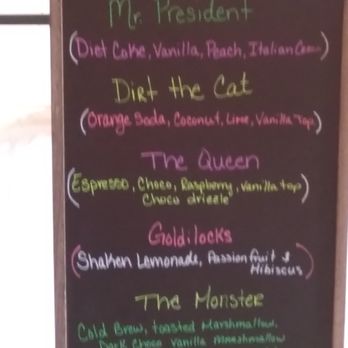 Mr. President
(Diet Coke, Vanilla, Peach, Italian Cream)
Dirt the Cat
(Orange Soda, Coconut, Lime, Vanilla Top)
The Queen
(Espresso, Choco, Raspberry, Vanilla top
Choco drizzle)
Goldilocks
(Shaken Lemonade, Passion fruit &
Hibiscus)
The Monster
Cold Brew, toasted Marshmallow,
Dark Choco Vanilla Marshmallow